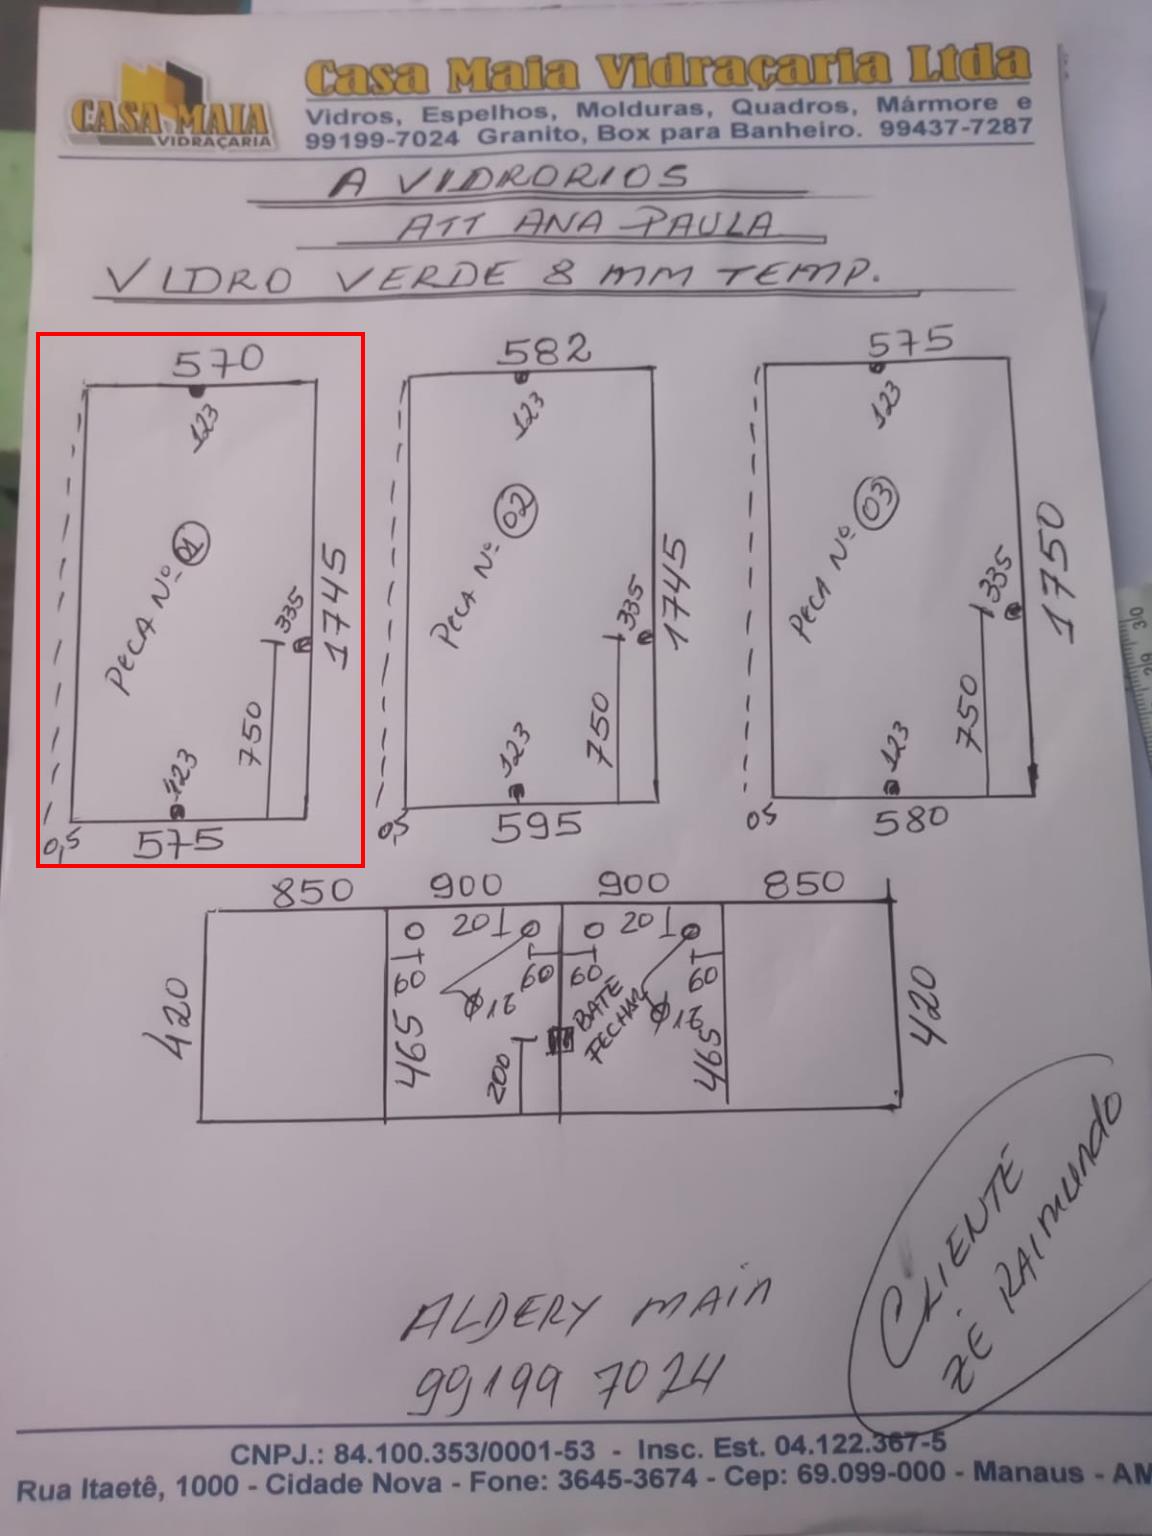 CASA MAIA
VIDRAÇARIA
Casa Maia Vidraçaria Ltda
Vidros, Espelhos, Molduras, Quadros, Mármore e
99199-7024 Granito, Box para Banheiro. 99437-7287
A VIDRORIOS
ATT ANA PAULA
VIDRO VERDE 8 MM TEMP.
570
123
PECA Nº 01
1335
1745
750
123
0,5
575
582
123
PECA Nº 02
1335
1745
750
123
0,5
595
575
123
PECA Nº 03
1335
1750
750
123
05
580
850 900 900 850
420
60
465
20
60
Ø16
200
60
BATE
FECHA
20
60
Ø16
465
420
CLIENTE
ZÉ RAIMUNDO
ALDERY MAIA
99199 7024
CNPJ.: 84.100.353/0001-53 - Insc. Est. 04.122.367-5
Rua Itaetê, 1000 - Cidade Nova - Fone: 3645-3674 - Cep: 69.099-000 - Manaus - AM
30
29